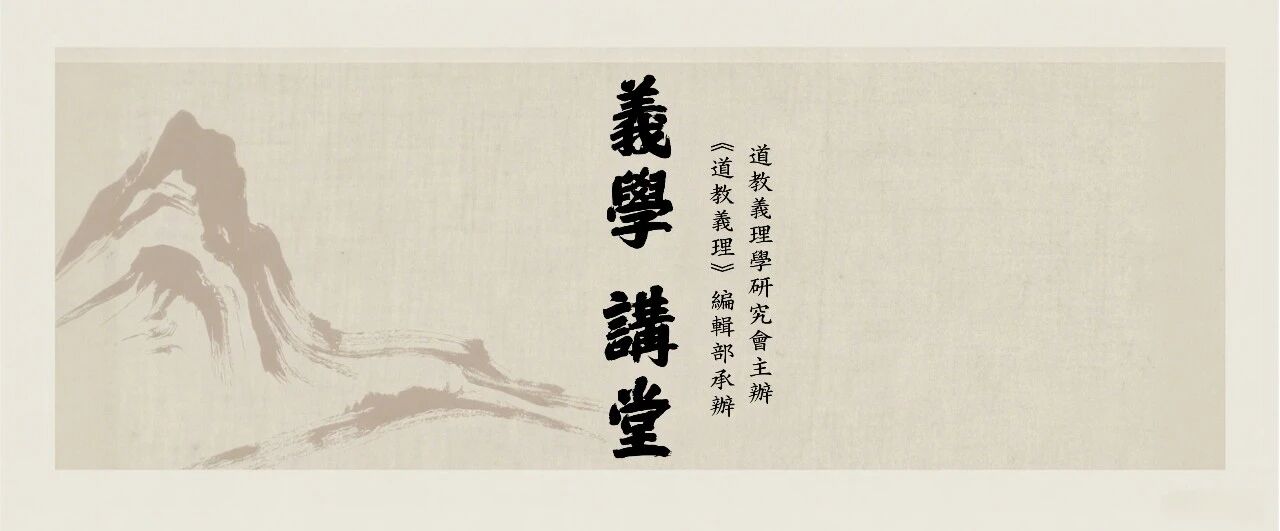 道教義理學研究會主辦
《道教義理》編輯部承辦
義學 講堂